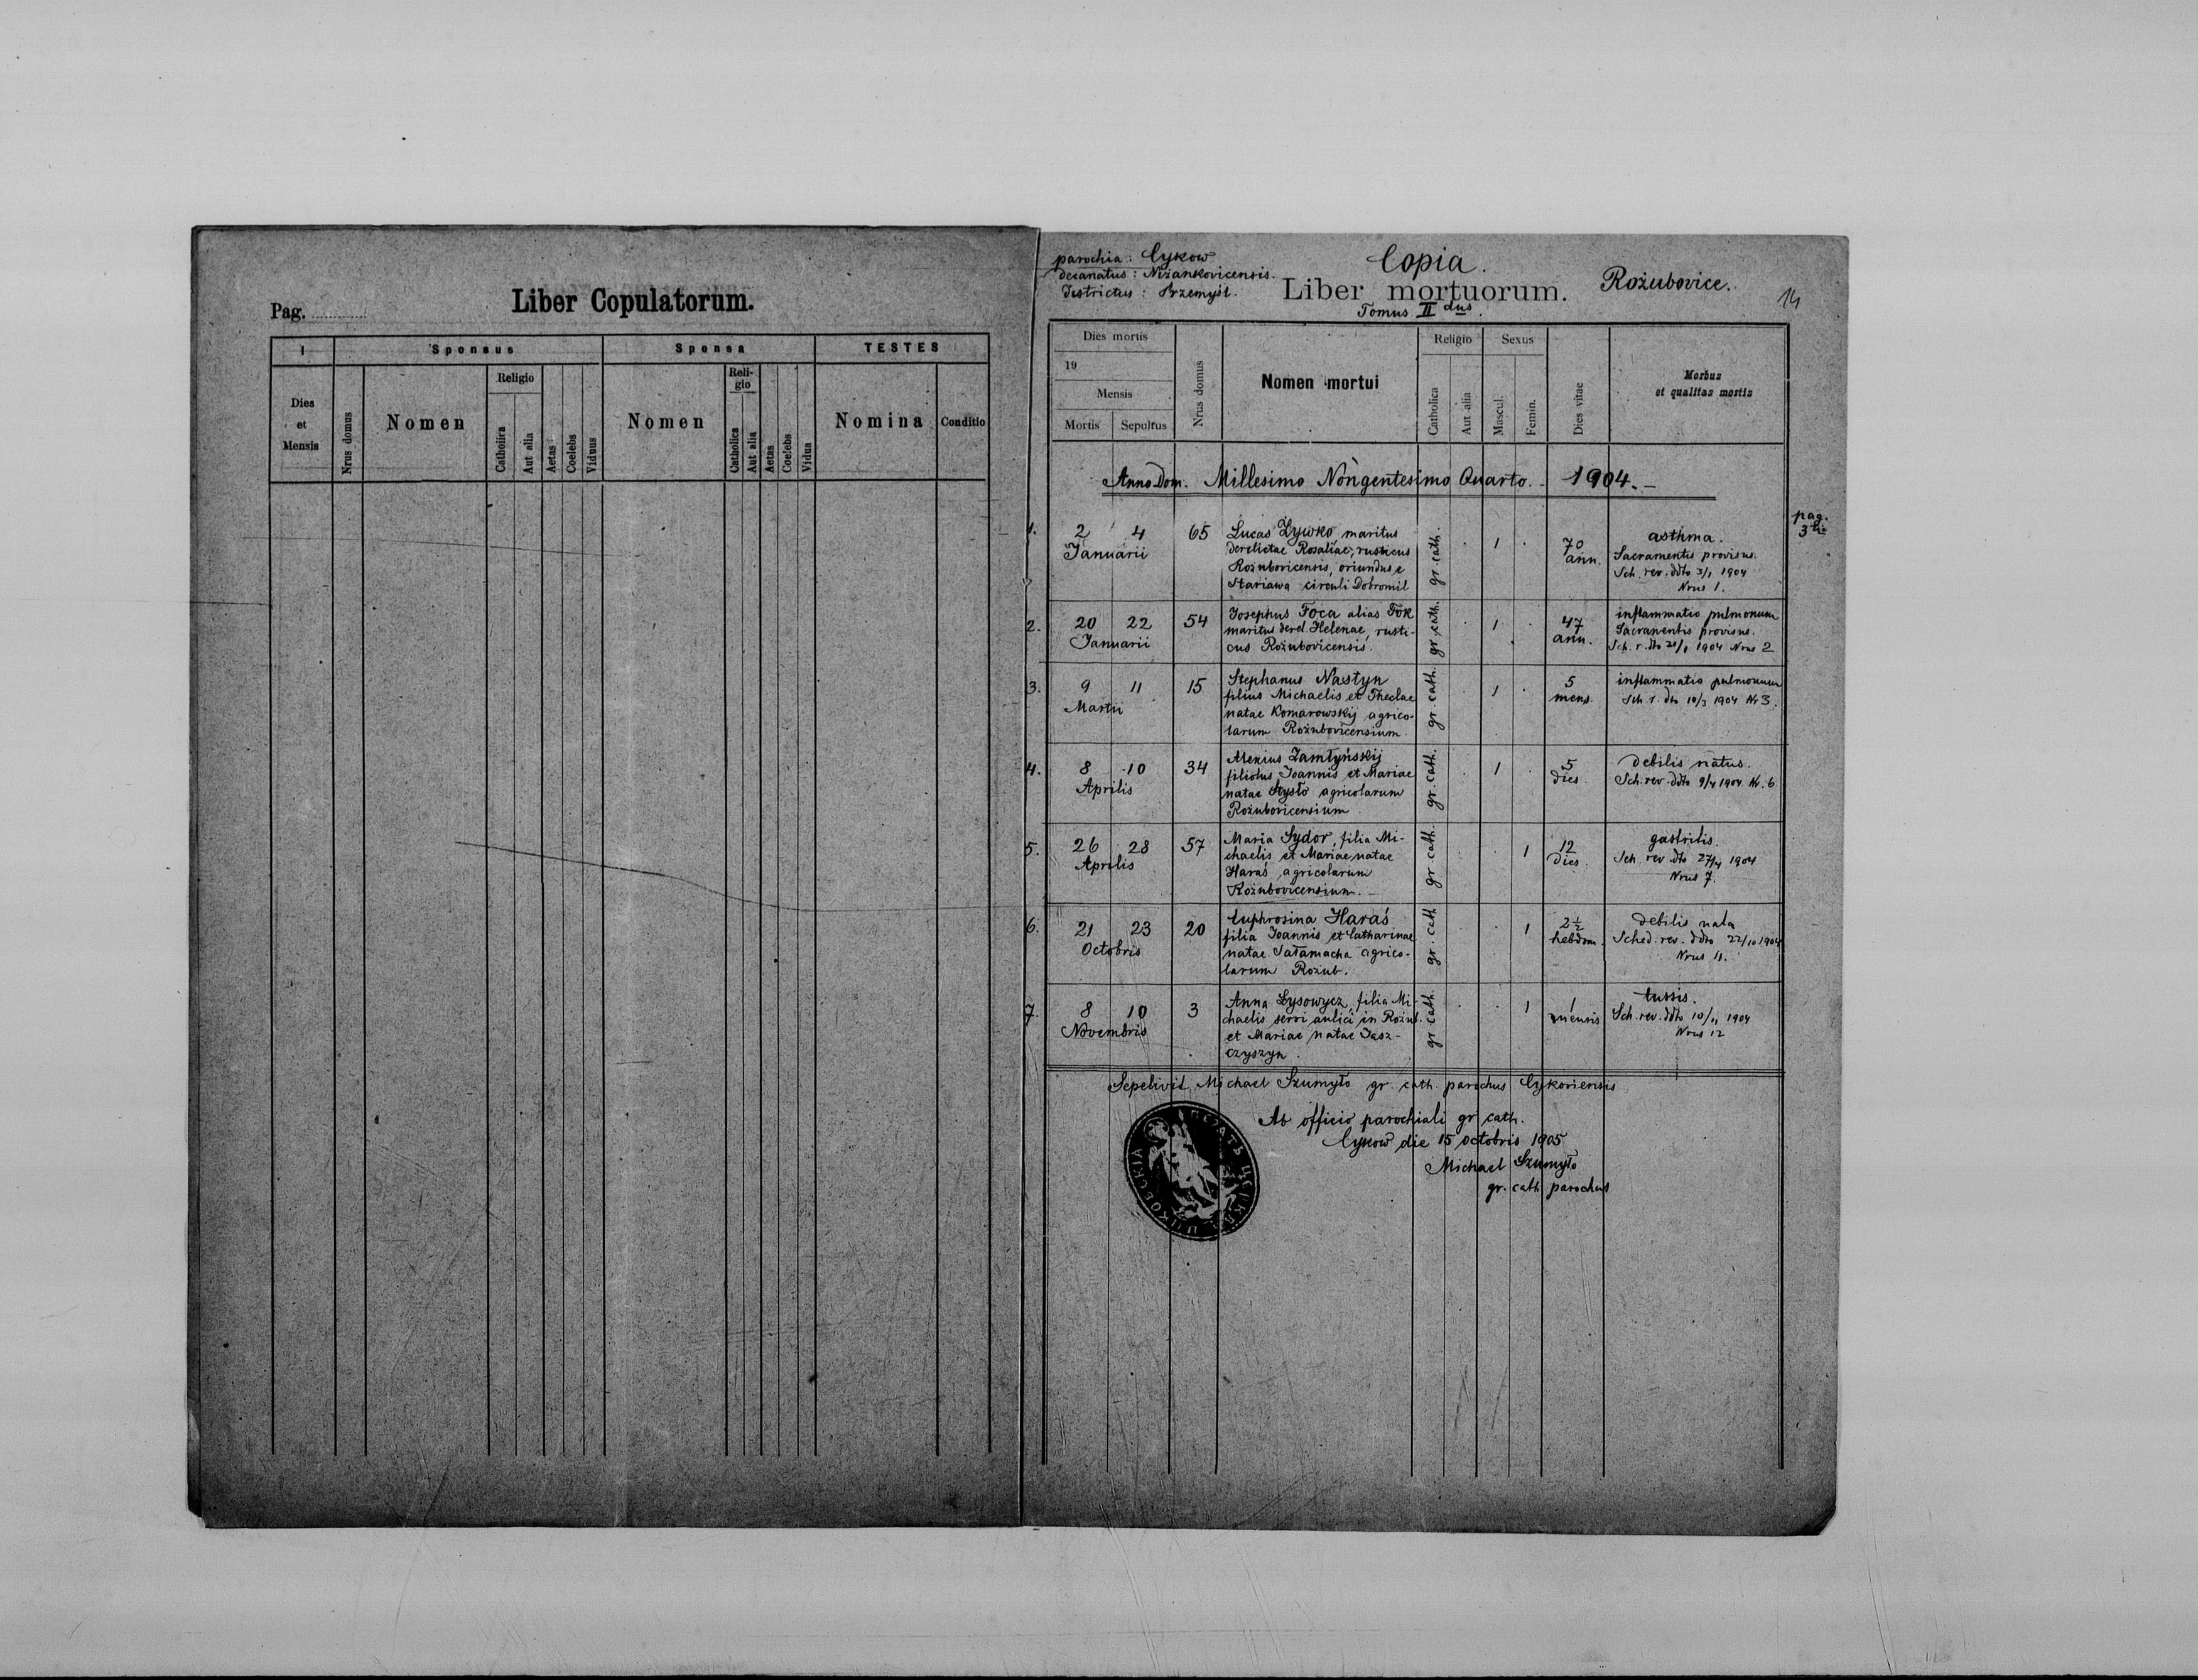 Pag.
Liber Copulatorum.
1
Sponsus
Sponsa
TESTES
Dies
et
Mensis
Nrus domus
Nomen
Religio
Catholica
Aut alia
Aetas
Coelebs
Viduus
Nomen
Reli-
gio
Catholica
Aut alia
Aetas
Coelebs
Vidua
Nomina
Conditio
parochia: Cykow
decanatus: Niżankovicensis.
Districtus: Przemyśl.
Copia.
Liber mortuorum.
Tomus II dus.
Rożubovice.
14
Dies mortis
19
Mensis
Mortis
Sepultus
Nrus domus
Nomen mortui
Religio
Catholica
Aut alia
Sexus
Mascul.
Femin.
Dies vitae
Morbus
et qualitas mortis
Anno Dom. Millesimo Nongentesimo Quarto. - 1904. -
pag.
3tia
1.
2 4
Januarii
65
Lucas Żywko maritus
derelictae Rosaliae, rusticus
Rożubovicensis, oriundus e
Stariawa circuli Dobromil
gr. cath.
1
70
ann.
asthma.
Sacramentis provisus.
Sch. rev. ddto 3/1 1904
Nrus 1.
2.
20 22
Januarii
54
Josephus Foca alias Fok
maritus derel. Helenae, rusti-
cus Rożubovicensis.
gr. cath.
1
47
ann.
inflammatio pulmonum
Sacramentis provisus.
Sch. r. dto 21/1 1904 Nrus 2
3.
9 11
Martii
15
Stephanus Nastyn
filius Michaelis et Theclae
natae Komarowskij agrico-
larum Rożubovicensium.
gr. cath.
1
5
mens.
inflammatio pulmonum
Sch. r. dto 10/3 1904 Nr 3.
4.
8 10
Aprilis
34
Alexius Zamłyńskij
filiolus Joannis et Mariae
natae Stysło agricolarum
Rożubovicensium
gr. cath.
1
5
dies.
debilis natus.
Sch. rev. ddto 9/4 1904. Nr. 6
5.
26 28
Aprilis
57
Maria Sydor, filia Mi-
chaelis et Mariae natae
Haraś agricolarum
Rożubovicensium. -
gr. cath.
1
12
Dies.
gastritis.
Sch. rev. dto 27/4 1904
Nrus 7.
6.
21 23
Octobris
20
Euphrosina Haraś
filia Joannis et Catharinae
natae Sałamacha agrico-
larum Rożub.
gr. cath
1
2½
hebdom.
debilis nata
Sched. rev. ddto 22/10 1904
Nrus 11.
7.
8 10
Novembris
3
Anna Łysowycz, filia Mi-
chaelis servi aulici in Rożub.
et Mariae natae Jasz-
czyszyn.
gr. cath.
1
1
mensis
tussis.
Sch. rev. ddto 10/11 1904
Nrus 12
Sepelivit Michael Szumyło gr. cath. parochus Cykoviensis
Ab officio parochiali gr. cath.
Cykow die 15 octobris 1905
Michael Szumyło
gr. cath. parochus